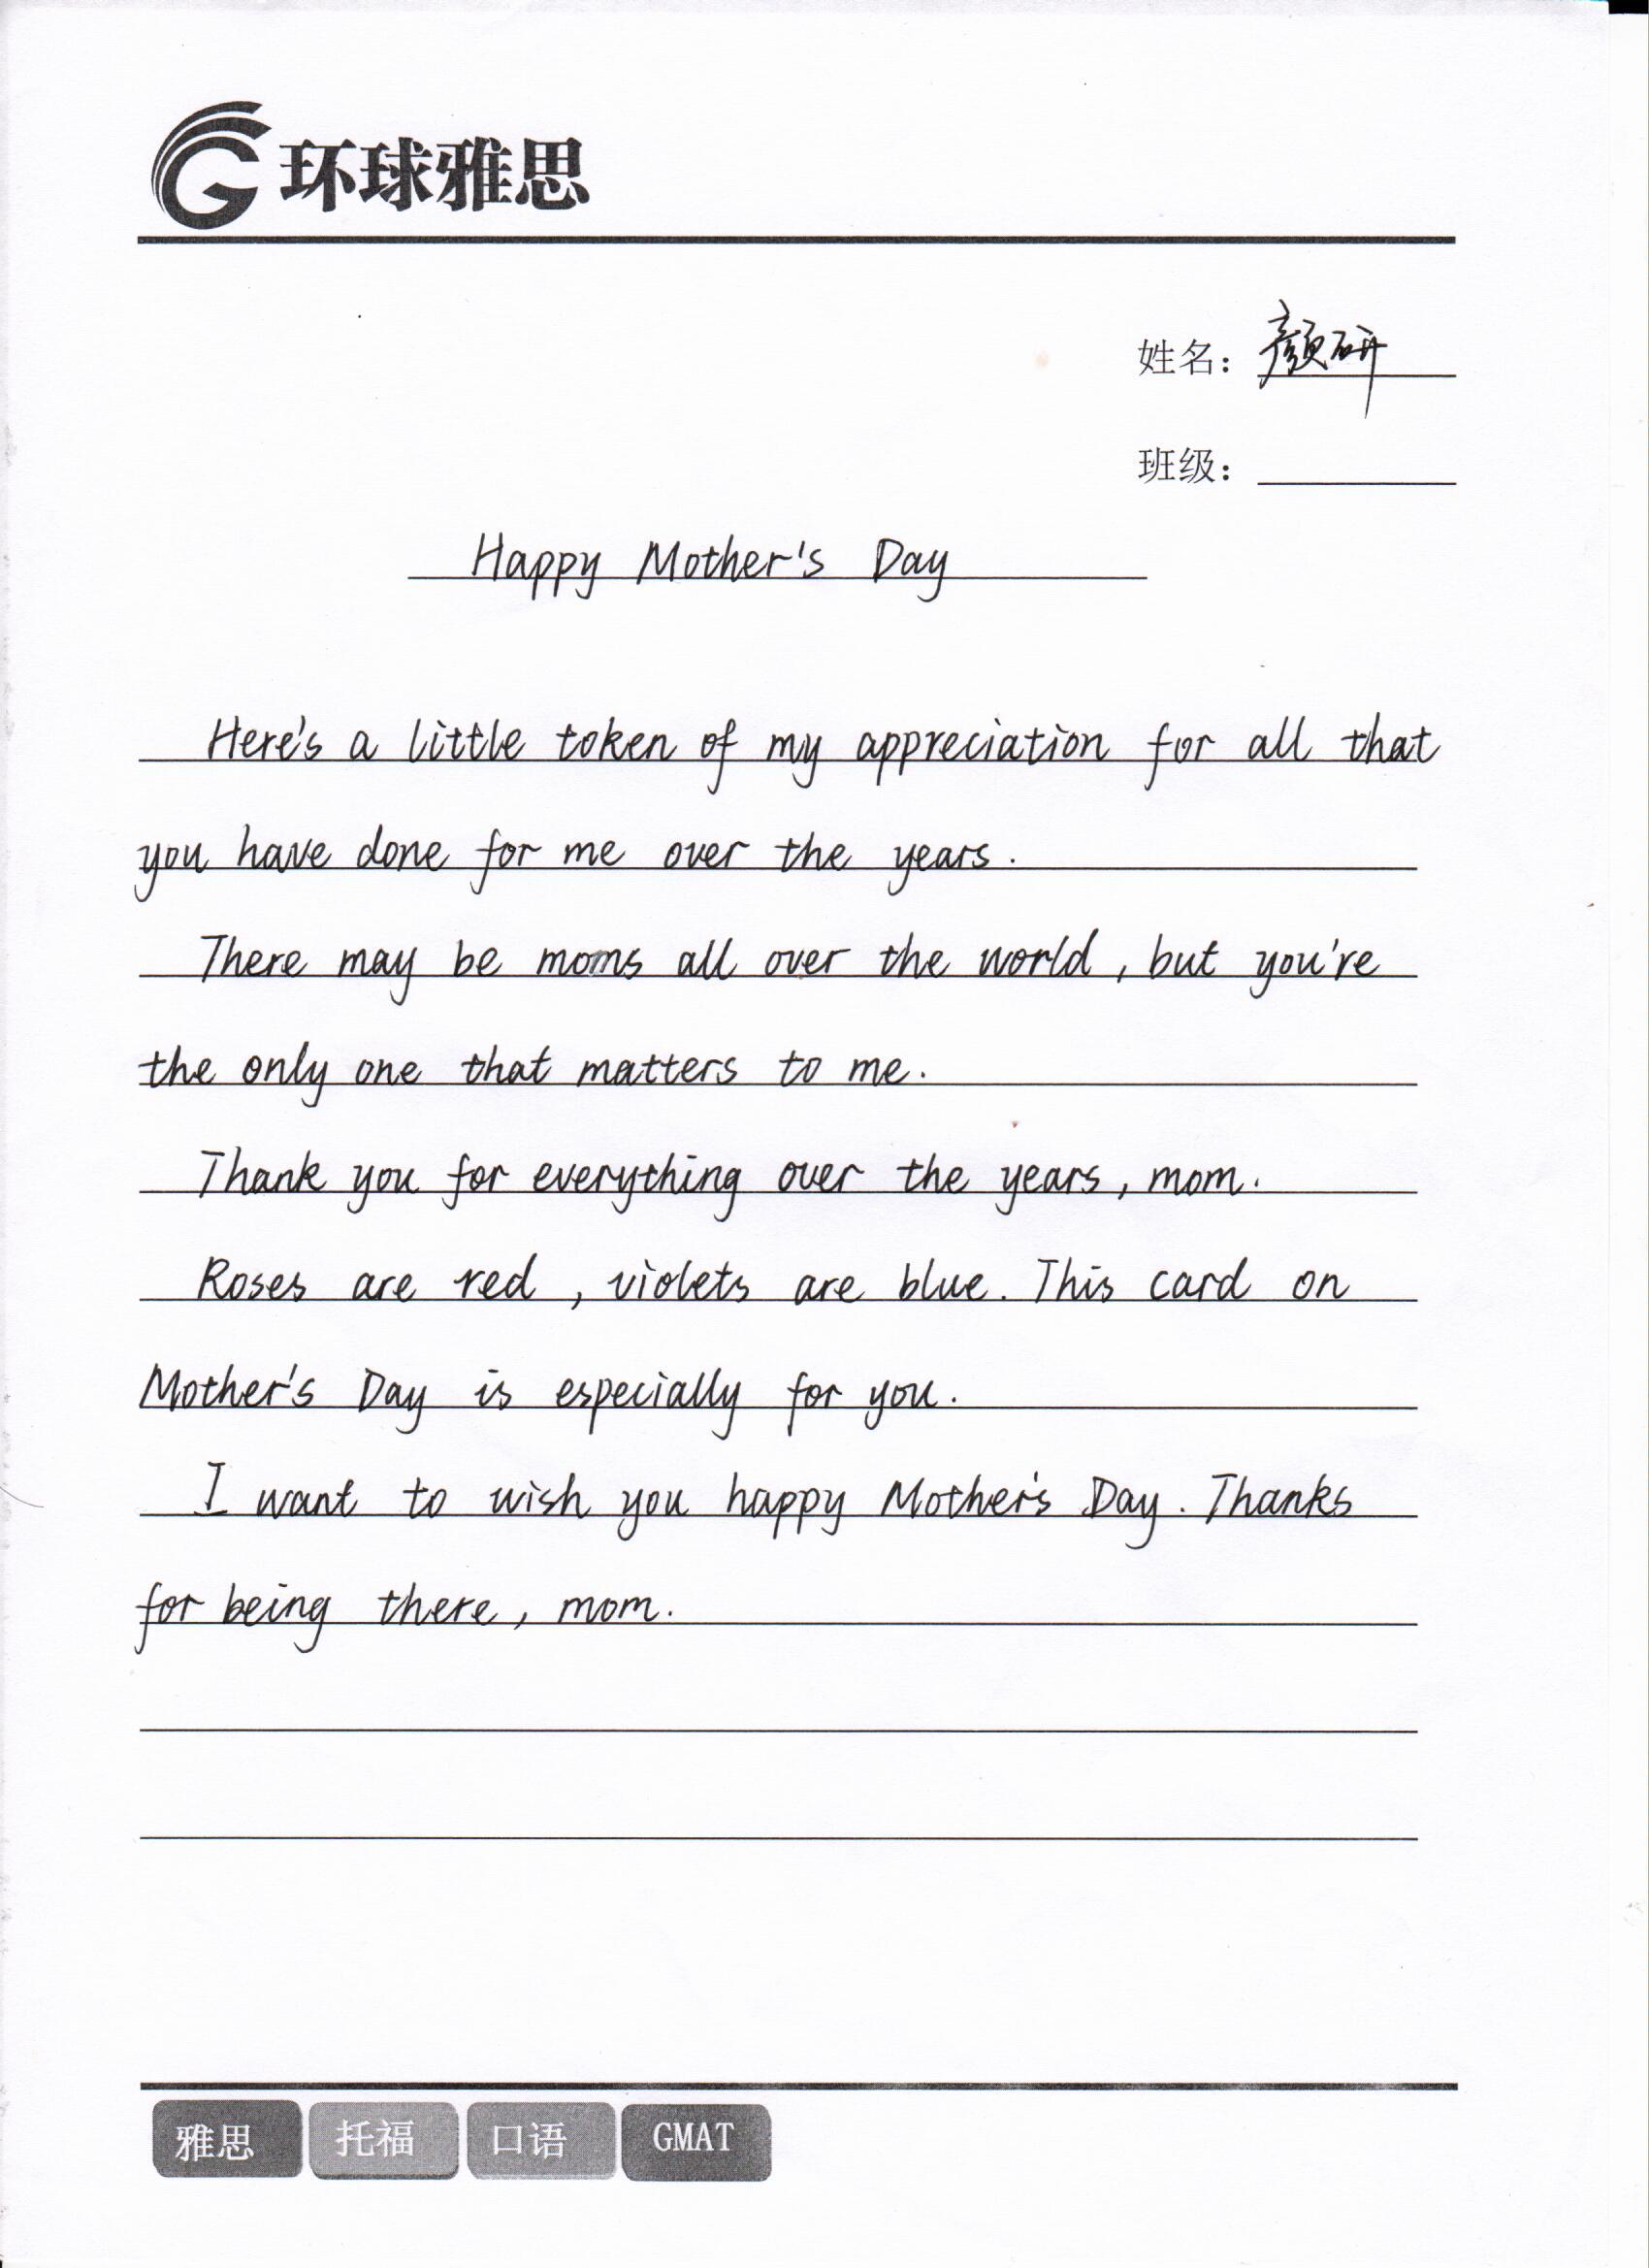 环球雅思
姓名：颜研
班级：
Happy Mother's Day
Here's a little token of my appreciation for all that
you have done for me over the years.
There may be moms all over the world, but you're
the only one that matters to me.
Thank you for everything over the years, mom.
Roses are red, violets are blue. This card on
Mother's Day is especially for you.
I want to wish you happy Mother's Day. Thanks
for being there, mom.
雅思 托福 口语 GMAT